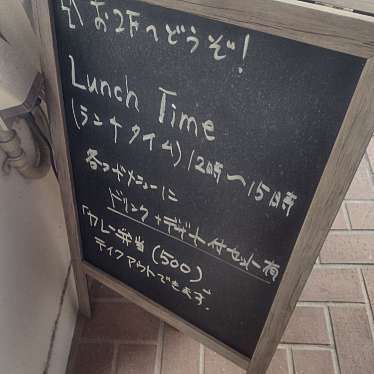 お2Fへどうぞ!
Lunch Time
(ランチタイム) 12時〜15時
各フードメニューに
ドリンク+デザート付セット有
「カレー弁当(500)
テイクアウトできます。